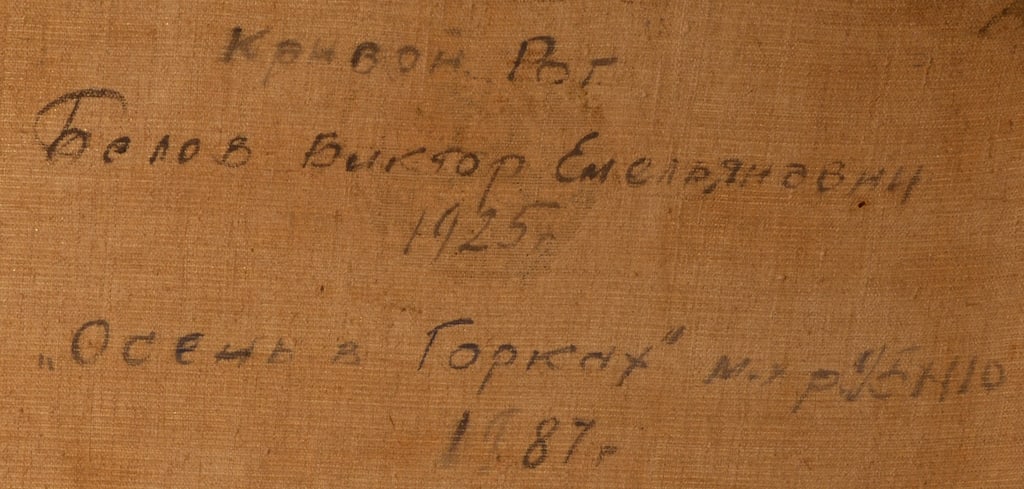 Кривой Рог
Белов Виктор Емельянович
1925г
„Осень в Горках"
1987г